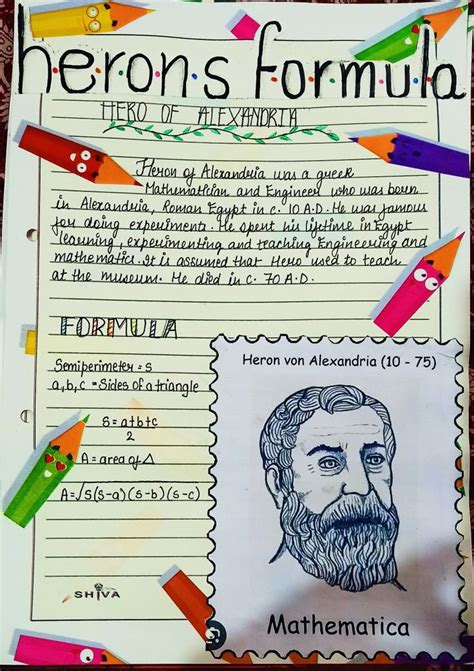 herons formula
HERO OF ALEXANDRIA
Heron of Alexandria was a greek
Mathematician and Engineer who was born
in Alexandria, Roman Egypt in c. 10 A.D. He was famous
for doing experiment. He spent his lifetime in Egypt
learning, experimenting and teaching Engineering and
mathematics. It is assumed that Hero used to teach
at the museum. He died in c. 70 A.D.
FORMULA
Semiperimeter = s
a,b,c = Sides of a triangle
S = a+b+c
2
A = area of △
A=√s(s-a)(s-b)(s-c)
SHIVA
Heron von Alexandria (10 - 75)
Mathematica